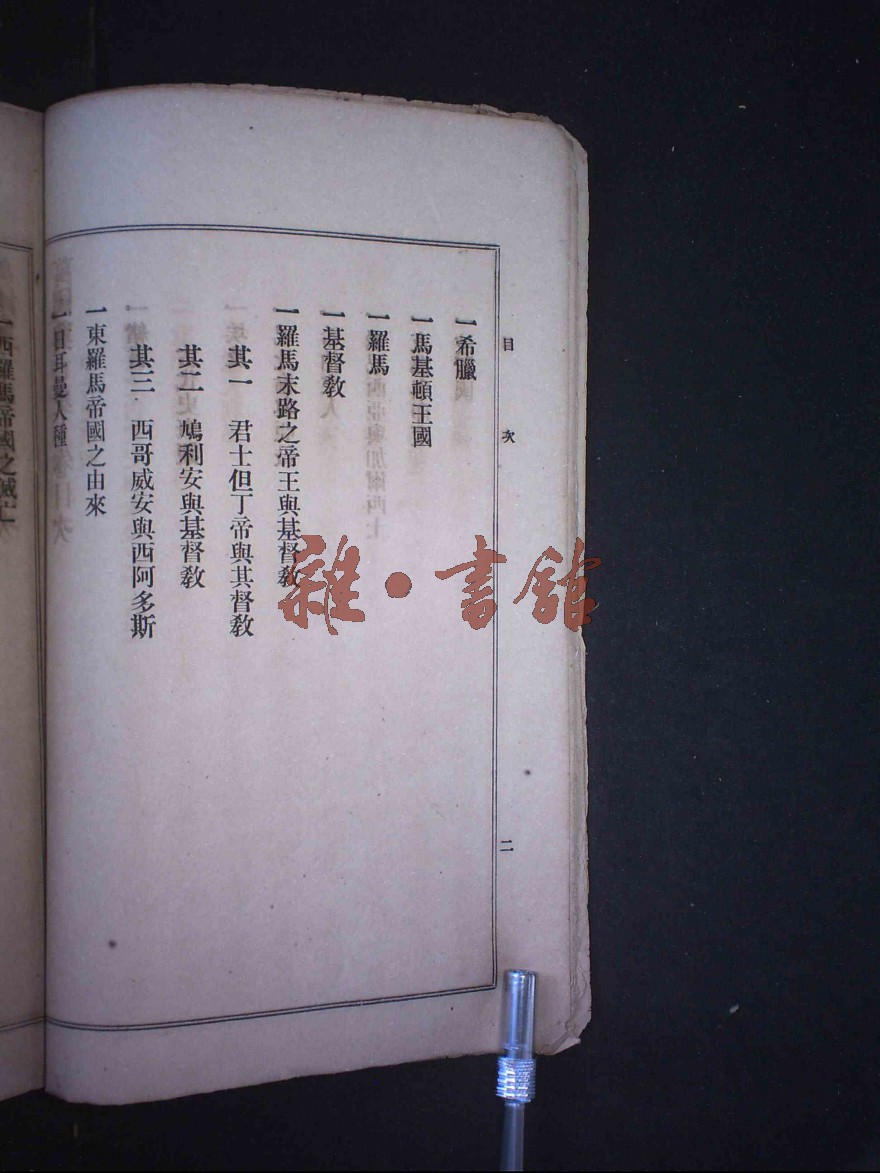 目次
二
一希臘
一馬基頓王國
一羅馬
一基督教
一羅馬末路之帝王與基督教
其一 君士但丁帝與其督教
其二 鳩利安與基督教
其三 西哥威安與西阿多斯
一東羅馬帝國之由來
一日耳曼人種
一西羅馬帝國之滅亡
雜・書館